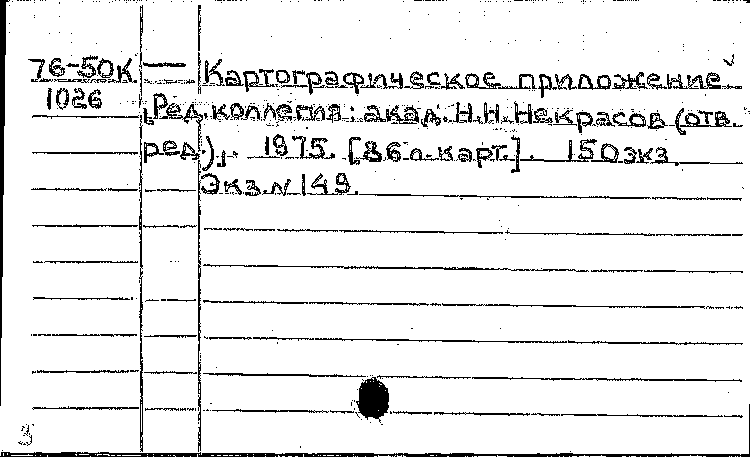 76-50К — Картографическое приложение.
1026 Ред. коллегия: акад. Н.Н. Некрасов (отв.
ред.). 1975. [86 л. карт.]. 150 экз.
Экз. N 149.
3